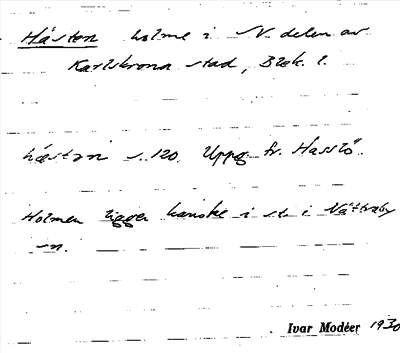 Hästen holme i N. delen av
Karlskrona stad, Blek. l.
hæstn s. 120. Uppg. fr. Hasslö.
Holmen ligger kanske i st. i Nättraby
sn.
Ivar Modéer 1930